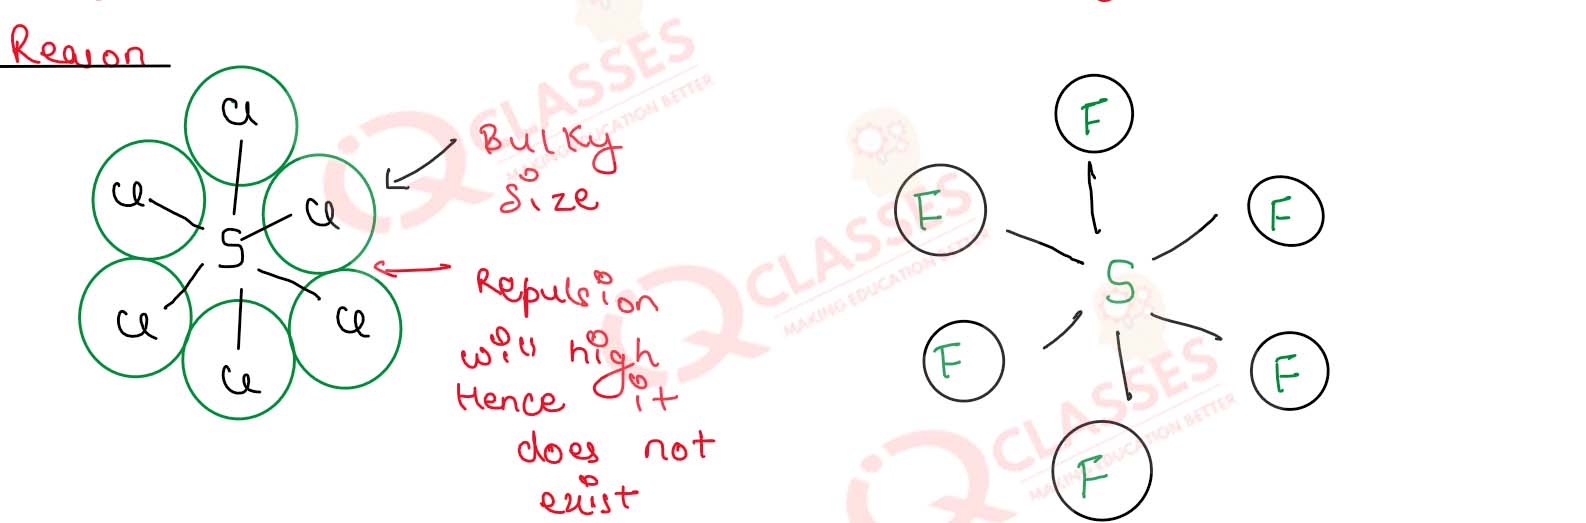 Reason
Cl
Cl
Cl
S
Cl
Cl
Cl
Bulky
size
Repulsion
will high
Hence it
does not
exist
F
F
F
S
F
F
F
iQ CLASSES
MAKING EDUCATION BETTER
iQ CLASSES
MAKING EDUCATION BETTER
iQ CLASSES
MAKING EDUCATION BETTER